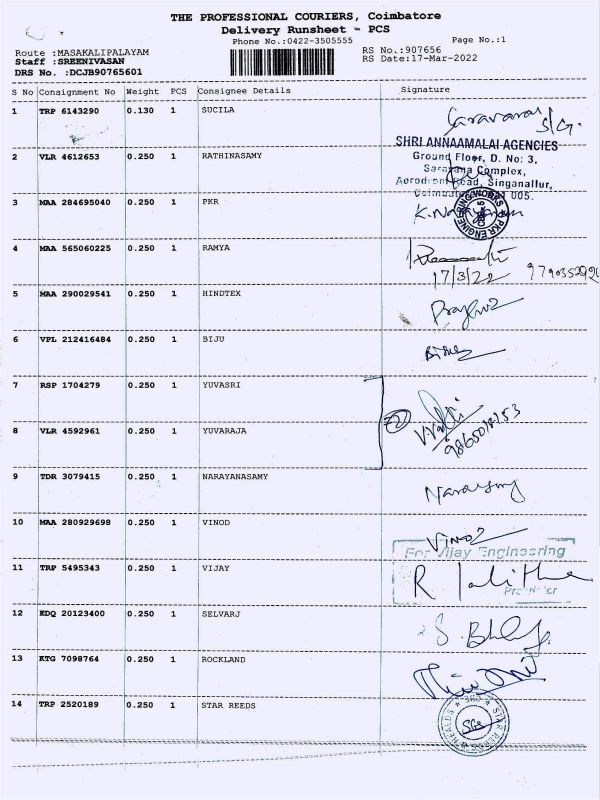 THE PROFESSIONAL COURIERS, Coimbatore
Delivery Runsheet - PCS
Phone No.:0422-3505555 Page No.:1
Route :MASAKALIPALAYAM RS No.:907656
Staff :SREENIVASAN RS Date:17-Mar-2022
DRS No. :DCJB90765601
S No Consignment No Weight PCS Consignee Details Signature
1 TRP 6143290 0.130 1 SUCILA
S/G.
SHRI ANNAAMALAI AGENCIES
2 VLR 4612653 0.250 1 RATHINASAMY Ground Floor, D. No: 3,
Saravana Complex,
Aerodrom Road, Singanallur,
005.
3 MAA 284695040 0.250 1 PKR
4 MAA 565060225 0.250 1 RAMYA
17/3/22
5 MAA 290029541 0.250 1 HINDTEX
6 VPL 212416484 0.250 1 BIJU
7 RSP 1704279 0.250 1 YUVASRI
8 VLR 4592961 0.250 1 YUVARAJA
9 TDR 3079415 0.250 1 NARAYANASAMY
10 MAA 280929698 0.250 1 VINOD
For Vijay Engineering
11 TRP 5495343 0.250 1 VIJAY R Lalitha
12 EDQ 20123400 0.250 1 SELVARJ
13 KTG 7098764 0.250 1 ROCKLAND
14 TRP 2520189 0.250 1 STAR REEDS